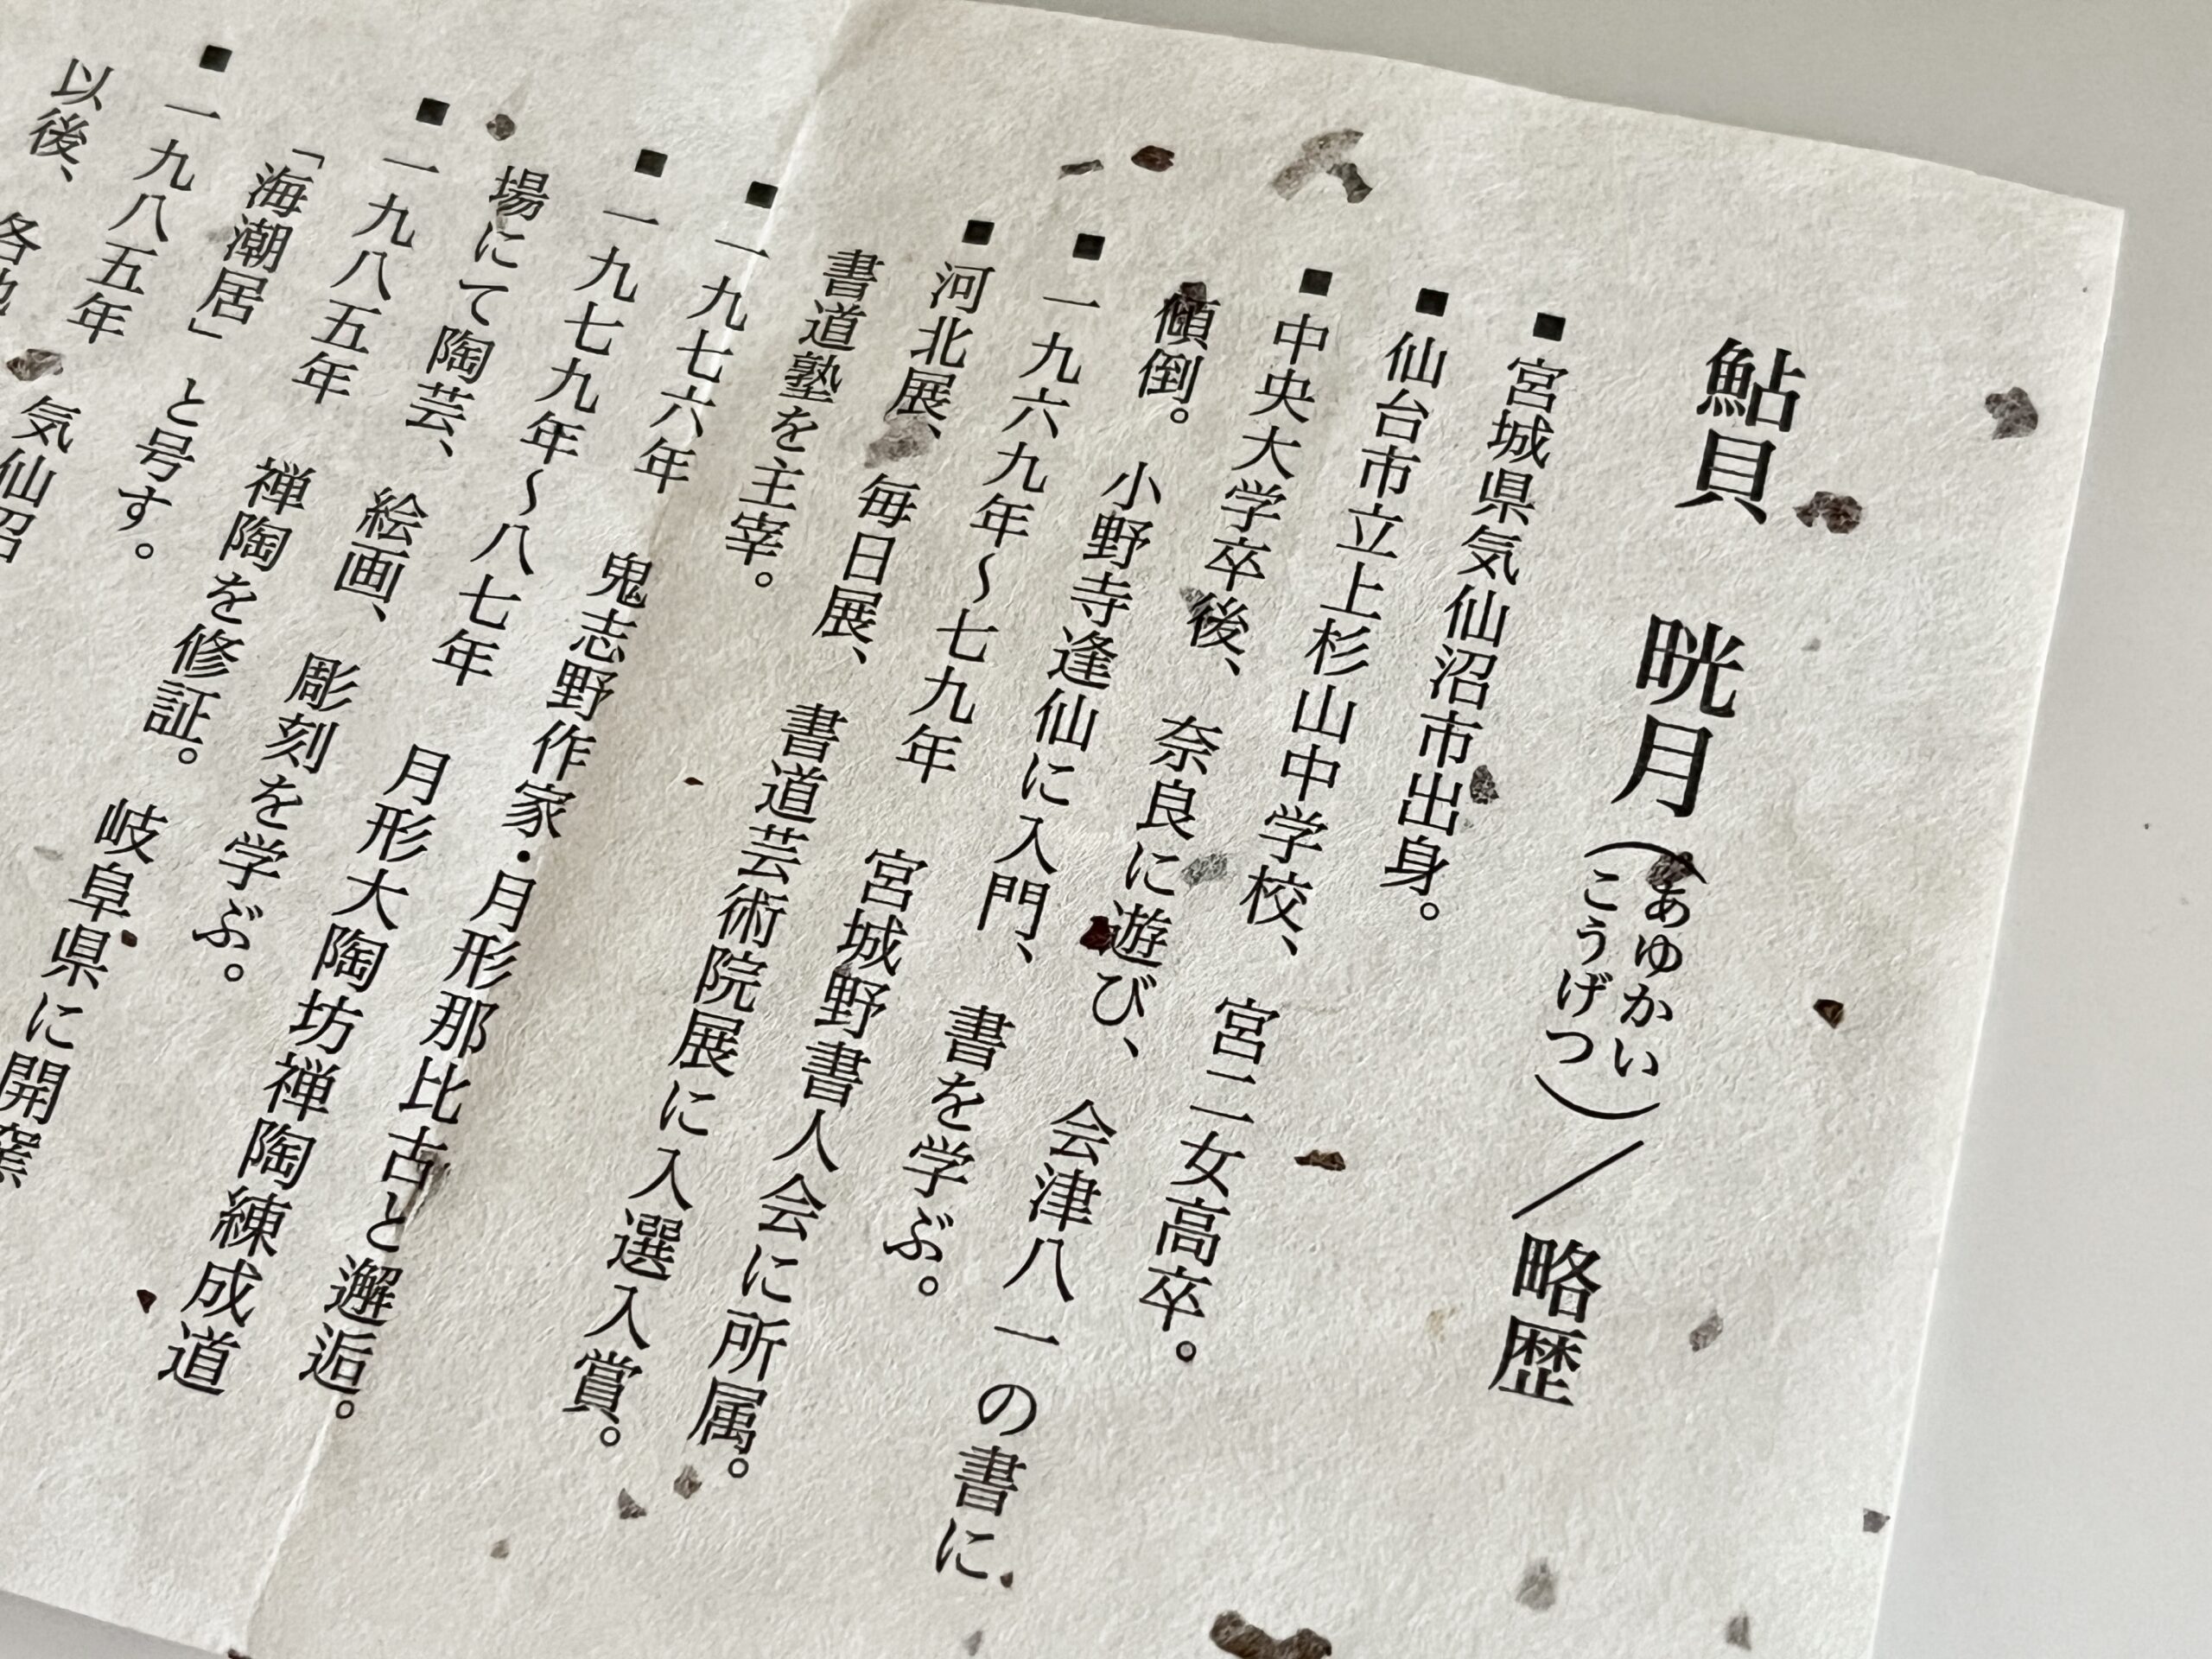 鮎貝　晄月（あゆかい こうげつ）／略歴
■宮城県気仙沼市出身。
■仙台市立上杉山中学校、宮二女高卒。
■中央大学卒後、奈良に遊び、会津八一の書に
傾倒。小野寺逢仙に入門、書を学ぶ。
■一九六九年〜七九年　宮城野書人会に所属。
■河北展、毎日展、書道芸術院展に入選入賞。
書道塾を主宰。
■一九七六年　鬼志野作家・月形那比古と邂逅。
■一九七九年〜八七年　月形大陶坊禅陶練成道
場にて陶芸、絵画、彫刻を学ぶ。
■一九八五年　禅陶を修証。岐阜県に開窯
「海潮居」と号す。
■一九八五年　気仙沼
以後、各地